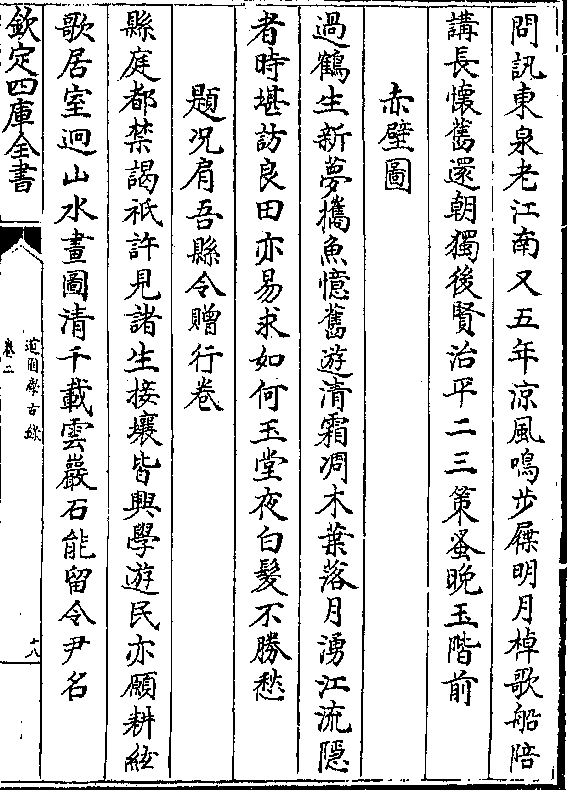 問訊東泉老江南又五年涼風鳴步屧明月棹歌船陪
講長懷舊還朝獨後賢治平二三策蚤晚玉階前
赤壁圖
過鶴生新夢攜魚憶舊遊清霜凋木葉落月湧江流隱
者時堪訪良田亦易求如何玉堂夜白髮不勝愁
題况肩吾縣令贈行卷
縣庭都禁謁祇許見諸生接壤皆興學遊民亦願耕絃
歌居室迥山水畫圖清千載雲巖石能留令尹名
欽定四庫全書
道園學古錄
卷二
十八